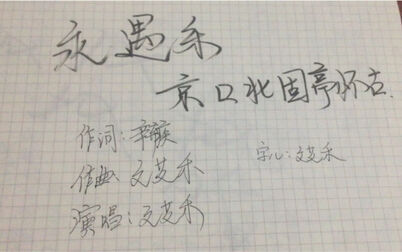 永遇乐
京口北固亭怀古.
作词:辛
作曲 文芝禾
字儿:文芝禾
演唱:文芝禾